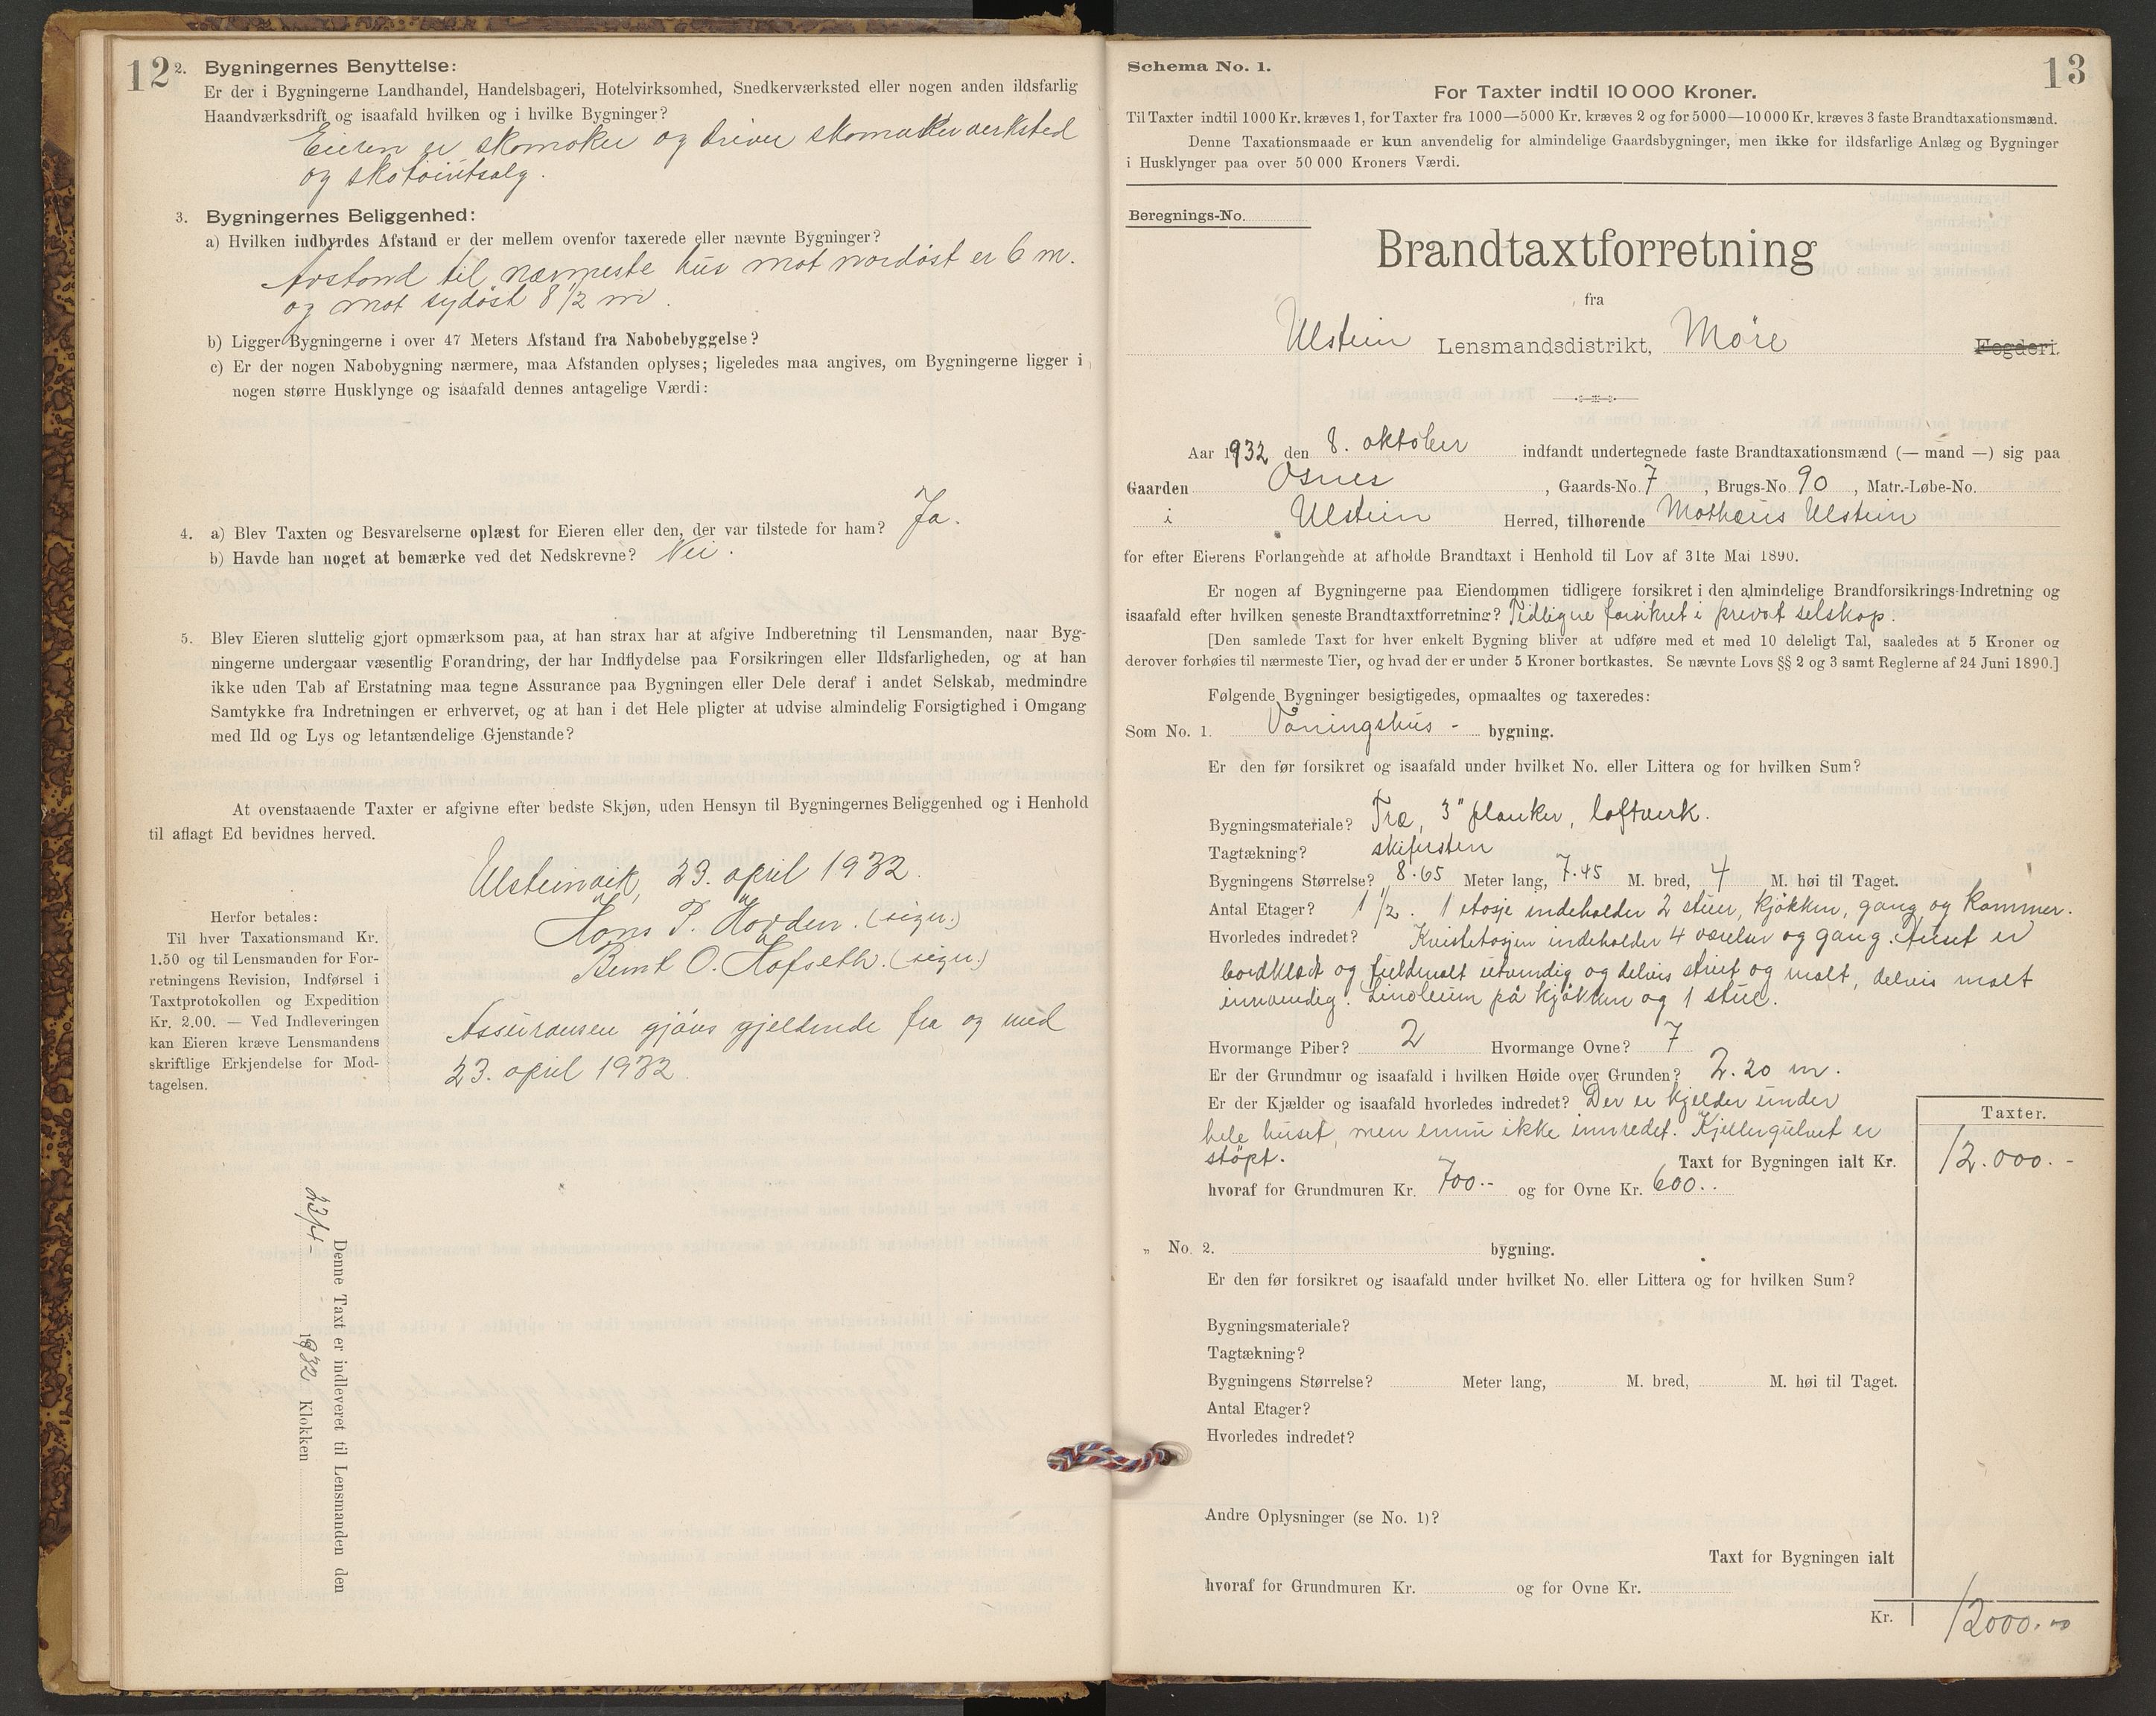 12
2. Bygningernes Benyttelse:
Er der i Bygningerne Landhandel, Handelsbageri, Hotelvirksomhed, Snedkerværksted eller nogen anden ildsfarlig
Haandværksdrift og isaafald hvilken og i hvilke Bygninger?
Eieren er skomaker og driver skomakerverksted
og skotøiutsalg.
3. Bygningernes Beliggenhed:
a) Hvilken indbyrdes Afstand er der mellem ovenfor taxerede eller nævnte Bygninger?
Avstand til nærmeste hus mot nordøst er 6 m.
og mot sydøst 8 1/2 m.
b) Ligger Bygningerne i over 47 Meters Afstand fra Nabobebyggelse?
c) Er der nogen Nabobygning nærmere, maa Afstanden oplyses; ligeledes maa angives, om Bygningerne ligger i
nogen større Husklynge og isaafald dennes antagelige Værdi:
4. a) Blev Taxten og Besvarelserne oplæst for Eieren eller den, der var tilstede for ham? Ja.
b) Havde han noget at bemærke ved det Nedskrevne? Nei.
5. Blev Eieren sluttelig gjort opmærksom paa, at han strax har at afgive Indberetning til Lensmanden, naar Byg-
ningerne undergaar væsentlig Forandring, der har Indflydelse paa Forsikringen eller Ildsfarligheden, og at han
ikke uden Tab af Erstatning maa tegne Assurance paa Bygningen eller Dele deraf i andet Selskab, medmindre
Samtykke fra Indretningen er erhvervet, og at han i det Hele pligter at udvise almindelig Forsigtighed i Omgang
med Ild og Lys og letantændelige Gjenstande?
At ovenstaaende Taxter er afgivne efter bedste Skjøn, uden Hensyn til Bygningernes Beliggenhed og i Henhold
til aflagt Ed bevidnes herved.
Ulsteinvik, 23. april 1932.
Hans P. Hovden. (sign.)
Bernt O. Hofseth. (sign.)
Assuransen gjøres gjeldende fra og med
23. april 1932.
Herfor betales:
Til hver Taxationsmand Kr.
1.50 og til Lensmanden for For-
retningens Revision, Indførsel i
Taxtprotokollen og Expedition
Kr. 2.00. — Ved Indleveringen
kan Eieren kræve Lensmandens
skriftlige Erkjendelse for Mod-
tagelsen.
Denne Taxt er indleveret til Lensmanden den
23/4- 1932 Klokken
13
Schema No. 1.
For Taxter indtil 10 000 Kroner.
Til Taxter indtil 1000 Kr. kræves 1, for Taxter fra 1000—5000 Kr. kræves 2 og for 5000—10 000 Kr. kræves 3 faste Brandtaxationsmænd.
Denne Taxationsmaade er kun anvendelig for almindelige Gaardsbygninger, men ikke for ildsfarlige Anlæg og Bygninger
i Husklynger paa over 50 000 Kroners Værdi.
Beregnings-No.
Brandtaxtforretning
fra
Ulstein Lensmandsdistrikt, Møre Fogderi.
Aar 1932 den 8. oktober indfandt undertegnede faste Brandtaxationsmænd (— mand —) sig paa
Gaarden Osnes, Gaards-No. 7, Brugs-No. 90, Matr.-Løbe-No.
i Ulstein Herred, tilhørende Mathæus Ulstein
for efter Eierens Forlangende at afholde Brandtaxt i Henhold til Lov af 31te Mai 1890.
Er nogen af Bygningerne paa Eiendommen tidligere forsikret i den almindelige Brandforsikrings-Indretning og
isaafald efter hvilken seneste Brandtaxtforretning? Tidligere forsikret i prevat selskap.
[Den samlede Taxt for hver enkelt Bygning bliver at udføre med et med 10 deleligt Tal, saaledes at 5 Kroner og
derover forhøies til nærmeste Tier, og hvad der er under 5 Kroner bortkastes. Se nævnte Lovs §§ 2 og 3 samt Reglerne af 24 Juni 1890.]
Følgende Bygninger besigtigedes, opmaaltes og taxeredes:
Som No. 1. Våningshus - bygning.
Er den før forsikret og isaafald under hvilket No. eller Littera og for hvilken Sum?
Bygningsmateriale? Træ, 3" planker, loftverk.
Tagtækning? skifersten
Bygningens Størrelse? 8.65 Meter lang, 7.45 M. bred, 4 M. høi til Taget.
Antal Etager? 1 1/2. 1 etasje indeholder 2 stuer, kjøkken, gang og kammer.
Hvorledes indredet? Kvistetasjen indeholder 4 værelser og gang. Huset er
bordklædt og fieldmalt utvendig og delvis striet og malt, delvis malt
innvendig. Linoleum på kjøkken og 1 stue.
Hvormange Piber? 2 Hvormange Ovne? 7
Er der Grundmur og isaafald i hvilken Høide over Grunden? 2.20 m.
Er der Kjælder og isaafald hvorledes indredet? Der er kjelder under
hele huset, men ennu ikke innredet. Kjellergulvet er
støpt.
Taxter.
Taxt for Bygningen ialt Kr. 12.000.-
hvoraf for Grundmuren Kr. 700.- og for Ovne Kr. 600..
„ No. 2. bygning.
Er den før forsikret og isaafald under hvilket No. eller Littera og for hvilken Sum?
Bygningsmateriale?
Tagtækning?
Bygningens Størrelse? Meter lang, M. bred, M. høi til Taget.
Antal Etager?
Hvorledes indredet?
Andre Oplysninger (se No. 1)?
Taxt for Bygningen ialt
hvoraf for Grundmuren Kr. og for Ovne Kr.
Kr. 12000.00